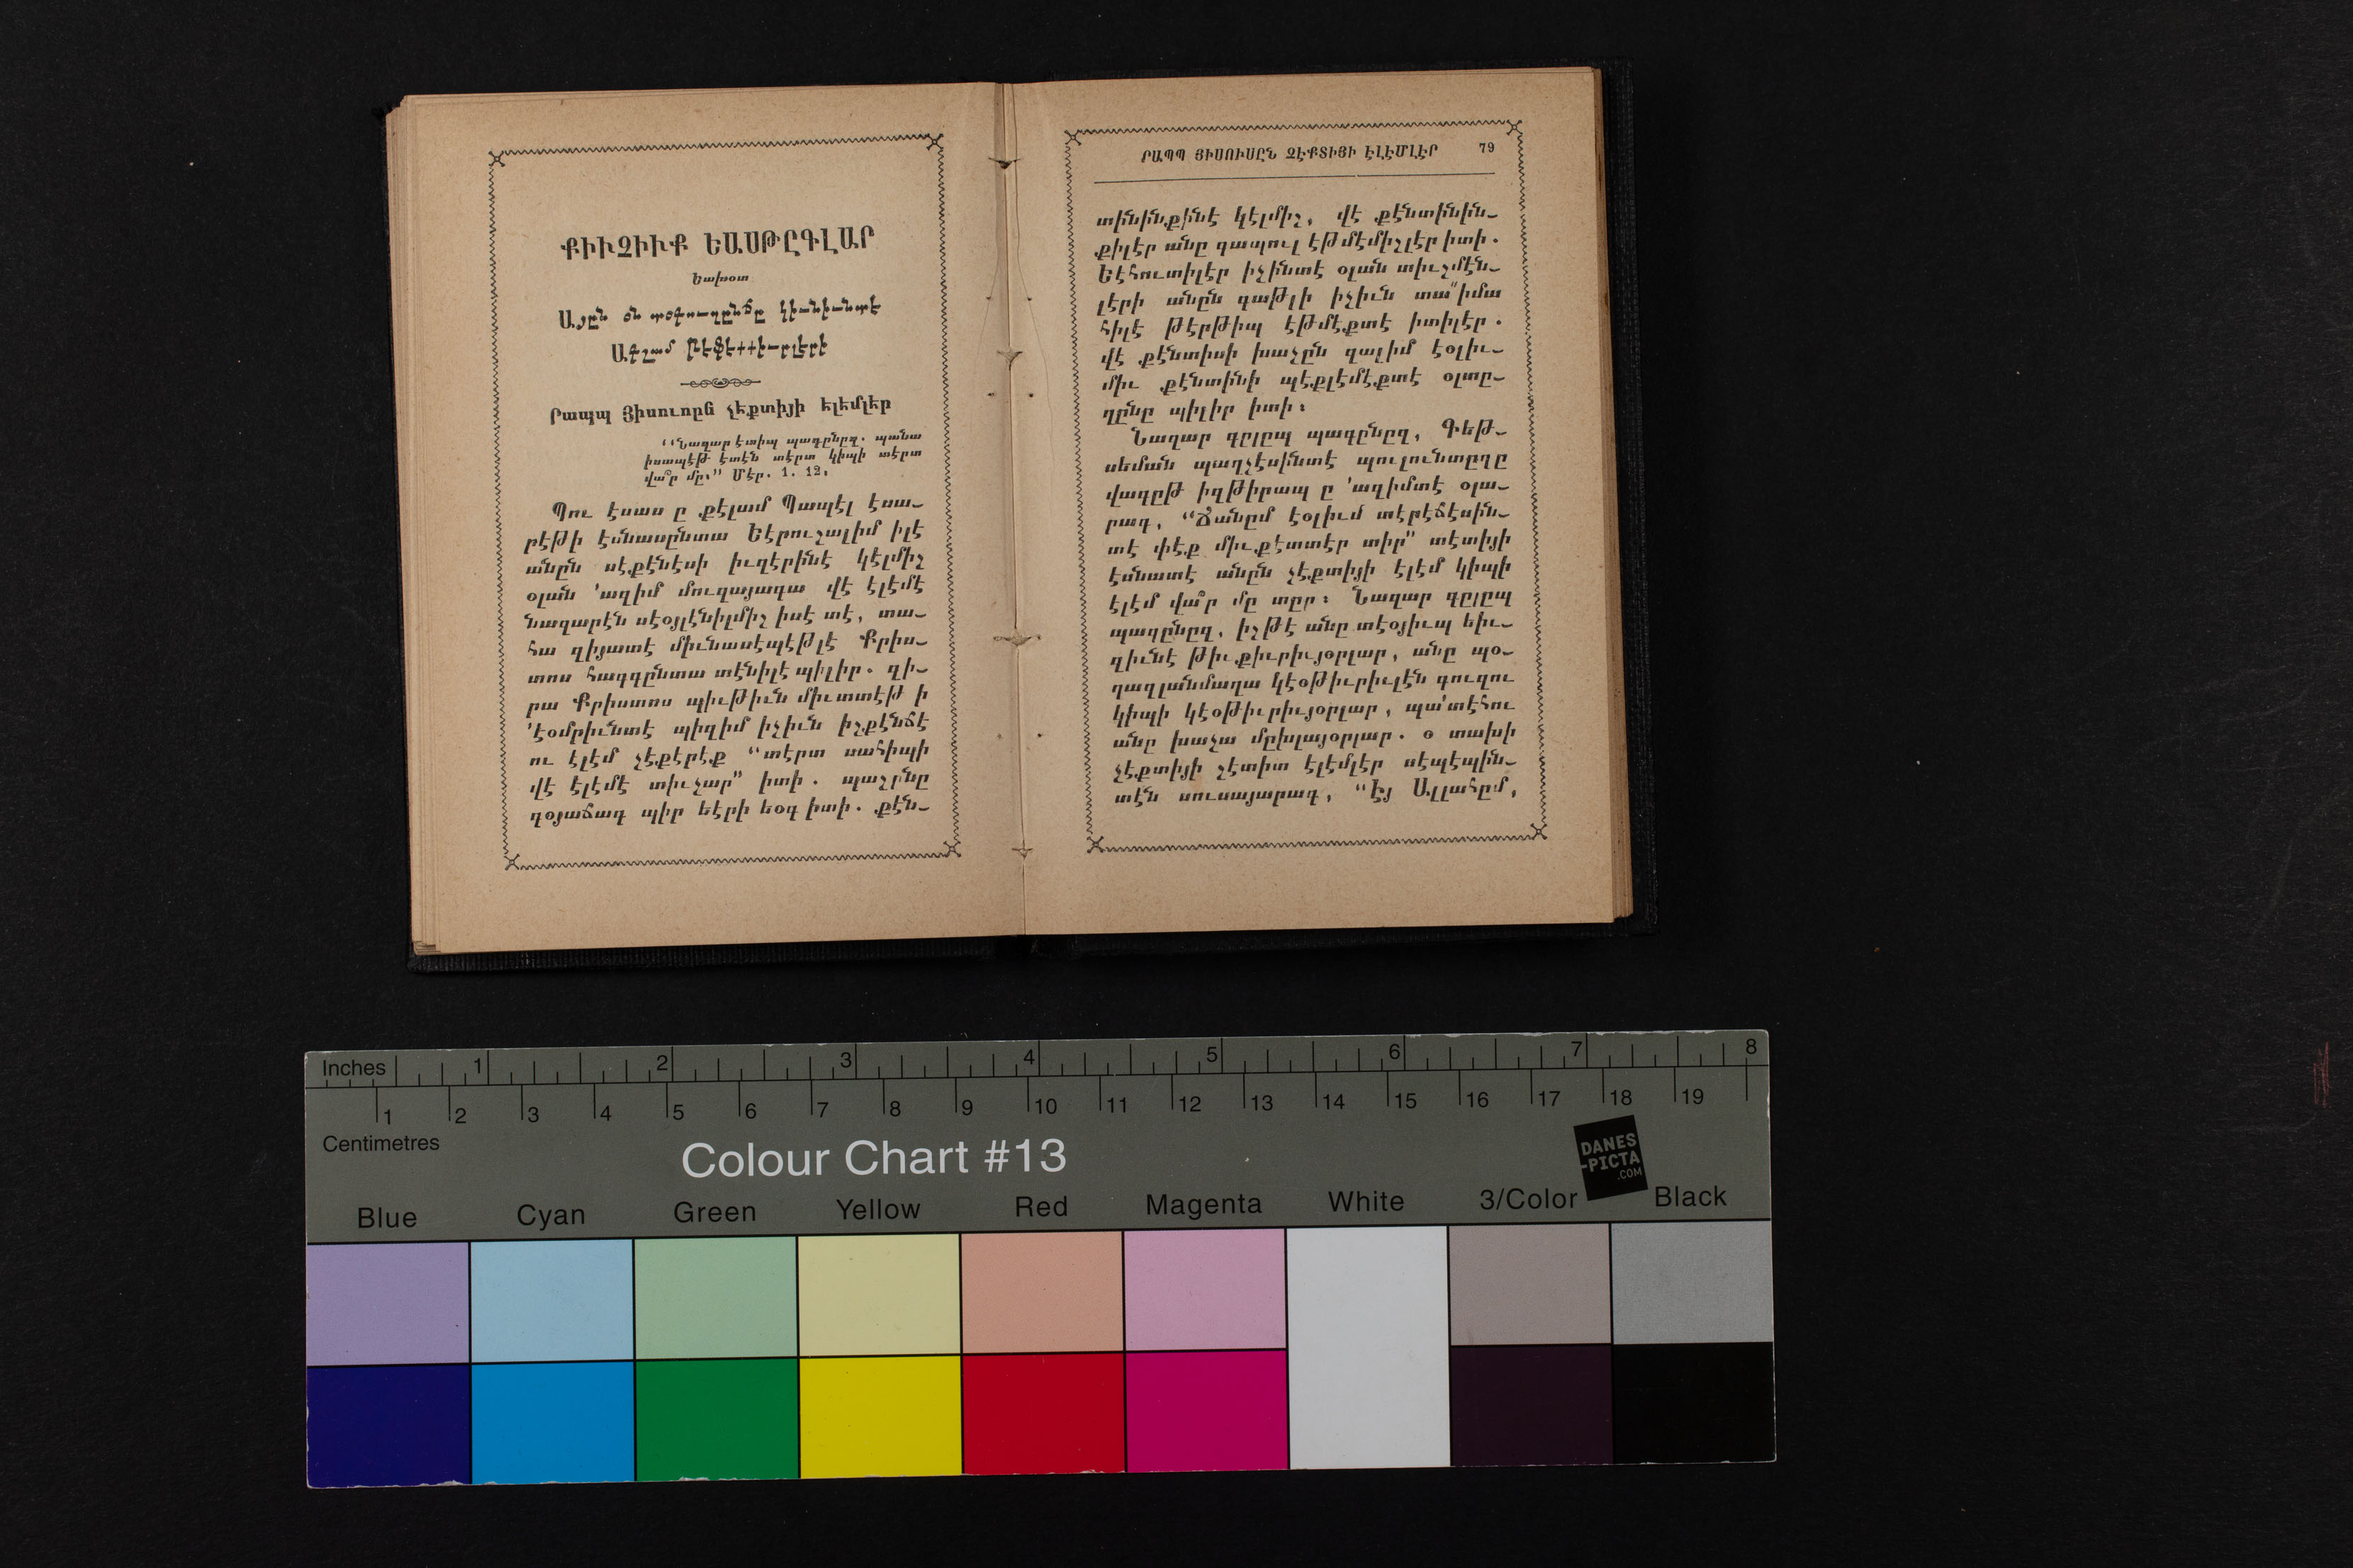 ՔԻՒՉԻՒՔ ԵԱՍԹԸԳԼԱՐ
Եախօտ
Այըն օն պօխազընճը կիւնիւնտէ
Ախշամ
Րապպ Յիսուսըն չեքտիյի ելեմլեր
“Նազար էտիպ պագընըզ. պանա
իսապէթ էտէն տէրտ կիպի տէրտ
վա՞ր մը։” Մէր. 1. 12։
Պու էսաս ը քէլամ Պապէլ էսա֊
րէթի էսնասընտա Եէրուշալիմ իլէ
անըն սէքէնէսի իւզէրինէ կէլմիշ
օլան ՚ազիմ մուզայագա վէ էլէմէ
նազարէն սէօյլէնիլմիշ իսէ տէ, տա֊
հա զիյատէ միւնասէպէթլէ Քրիս֊
տոս հագգընտա տէնիլէ պիլիր. զի֊
րա Քրիստոս պիւթիւն միւտտէթ ի
՚էօմրիւնտէ պիզիմ իչիւն իշքէնճէ
ու էլէմ չէքէրէք “տէրտ սահիպի
վէ էլէմէ տիւչար” իտի. պաշընը
գօյաճագ պիր եէրի եօգ իտի. քէն֊
ՐԱՊՊ ՅԻՍՈՒՍԸՆ ՉԷՔՏԻՅԻ ԷԼԷՄԼԷՐ 79
տինինքինէ կէլմիշ, վէ քէնտինին֊
քիլէր անը գապուլ էթմէմիշլէր իտի.
Եէհուտիլէր իչինտէ օլան տիւշմէն֊
լէրի անըն գաթլի իչիւն տա՟իմա
հիլէ թէրթիպ էթմէքտէ իտիլէր.
վէ քէնտիսի խաչըն զալիմ էօլիւ֊
միւ քէնտինի պէքլէմէքտէ օլտը֊
ղընը պիլիր իտի։
Նազար գըլըպ պագընըզ, Գեթ֊
սեման պաղչէսինտէ պուլունտըղը
վագըթ իզթիրապ ը ՚ազիմտէ օլա֊
րագ, “Ճանըմ էօլիւմ տէրէճէսին֊
տէ փէք միւքէտտէր տիր” տէտիյի
էսնատէ անըն չէքտիյի էլէմ կիպի
էլէմ վա՞ր մը տըր։ Նազար գըլըպ
պագընըզ, իշթէ անը տէօյիւպ եիւ֊
զիւնէ թիւքիւրիւյօրլար, անը պօ֊
ղազլանմաղա կէօթիւրիւլէն գուզու
կիպի կէօթիւրիւյօրլար, պա՚տէհու
անը խաչա մըխլայօրլար. օ տախի
չէքտիյի շէտիտ էլէմլէր սէպէպին֊
տէն սուսայարագ, “Էյ Ալլահըմ,
Inches 1 2 3 4 5 6 7 8
1 2 3 4 5 6 7 8 9 10 11 12 13 14 15 16 17 18 19
Centimetres
Colour Chart #13
DANES
-PICTA
.COM
Blue Cyan Green Yellow Red Magenta White 3/Color Black